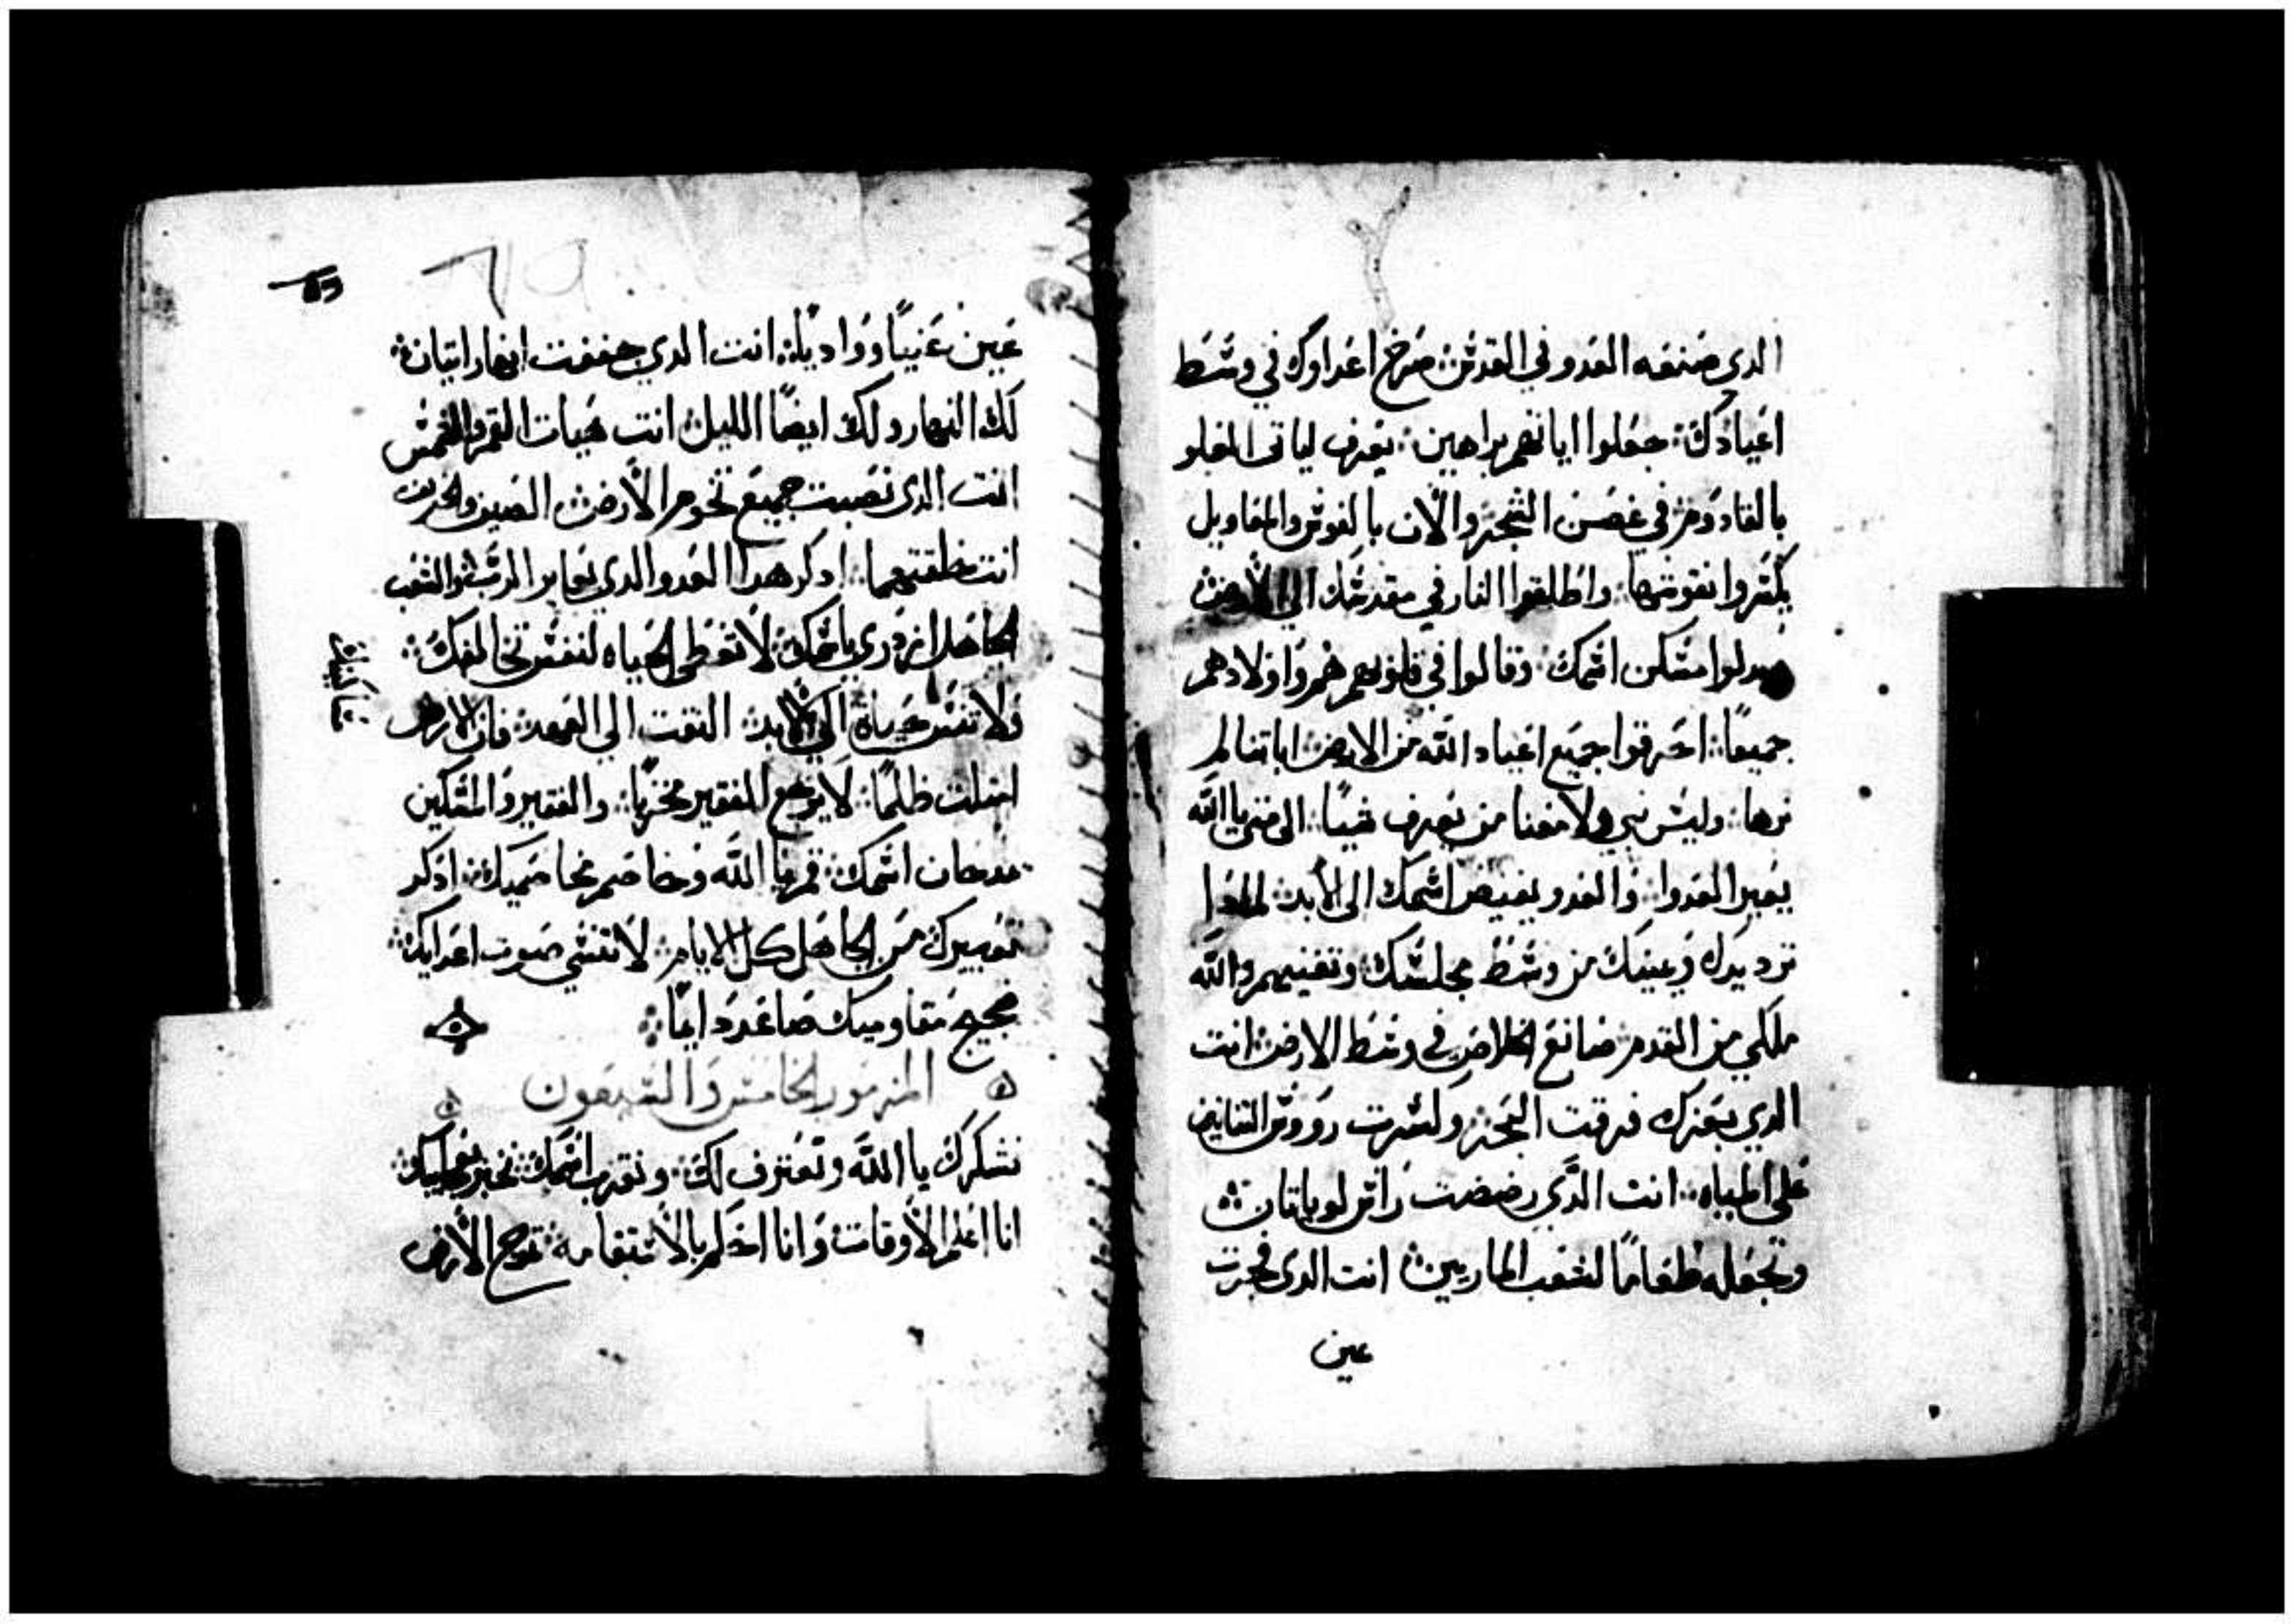 الدي صنعه العدو في القدس صرخ اعداوك في وسط
اعيادك جعلوا اياتهم براهين يعرف لياتى العلو
بالقادوم في غصن الشجر والان بالفوس والمعاويل
يكسروا نقوشها واطلقوا النار في مقدسك الي الأرض
مسكن اسمك وقالوا في قلوبهم هم واولادهم
جميعًا احرقوا جميع اعياد الله من الارض اياتنا لم
نرها وليس نبي ولا معنا من يعرف شيًا الى متى يا الله
يعير العدوا والعدو يغيض اسمك الى الأبد لمادا
ترد يدك ويمينك من وسط مجلسك وتفنيهم والله
ملكي من القدم صانع الخلاص في وسط الارض انت
الدي بعزك فرقت البحر وكسرت رووس التنانين
على المياه انت الدَّي رضضت راس لوياتان
وتجعله طعامًا لشعب الماريين انت الدى فجرت
عين
عين عنيبًا وواديًا انت الدي جففت انهار اتيان
لك النهار ولك ايضًا الليل انت هيات القمر والشمس
انت الدى نصبت جميع تخوم الأرض الصيف والخريف
انت خلقتهما ادكر هدا العدو الدي يعاير الرب والشعب
الجاهل ازدري باسمك لا تعطى الحياه لنفس تخالفك
ولا تنس حياة الى الابد التفت الي العهد فان الارض
امتلت ظلمًا لا يرجع الفقير مخزيا والفقير والمسكين
يمدحان اسمك قم يا الله وخاصم مخاصميك ادكر
تعييرك من الجاهل كل الايام لا تنسى صوت اعدايك
ضجيج مقاوميك صاعد دايمًا
المزمور الخامس والسبعون
نشكرك يا الله ونعترف لك وندعو باسمك نخبر بعجايبك
انا اعلم الأوقات وانا احكم بالاستقامه تموج الأرض